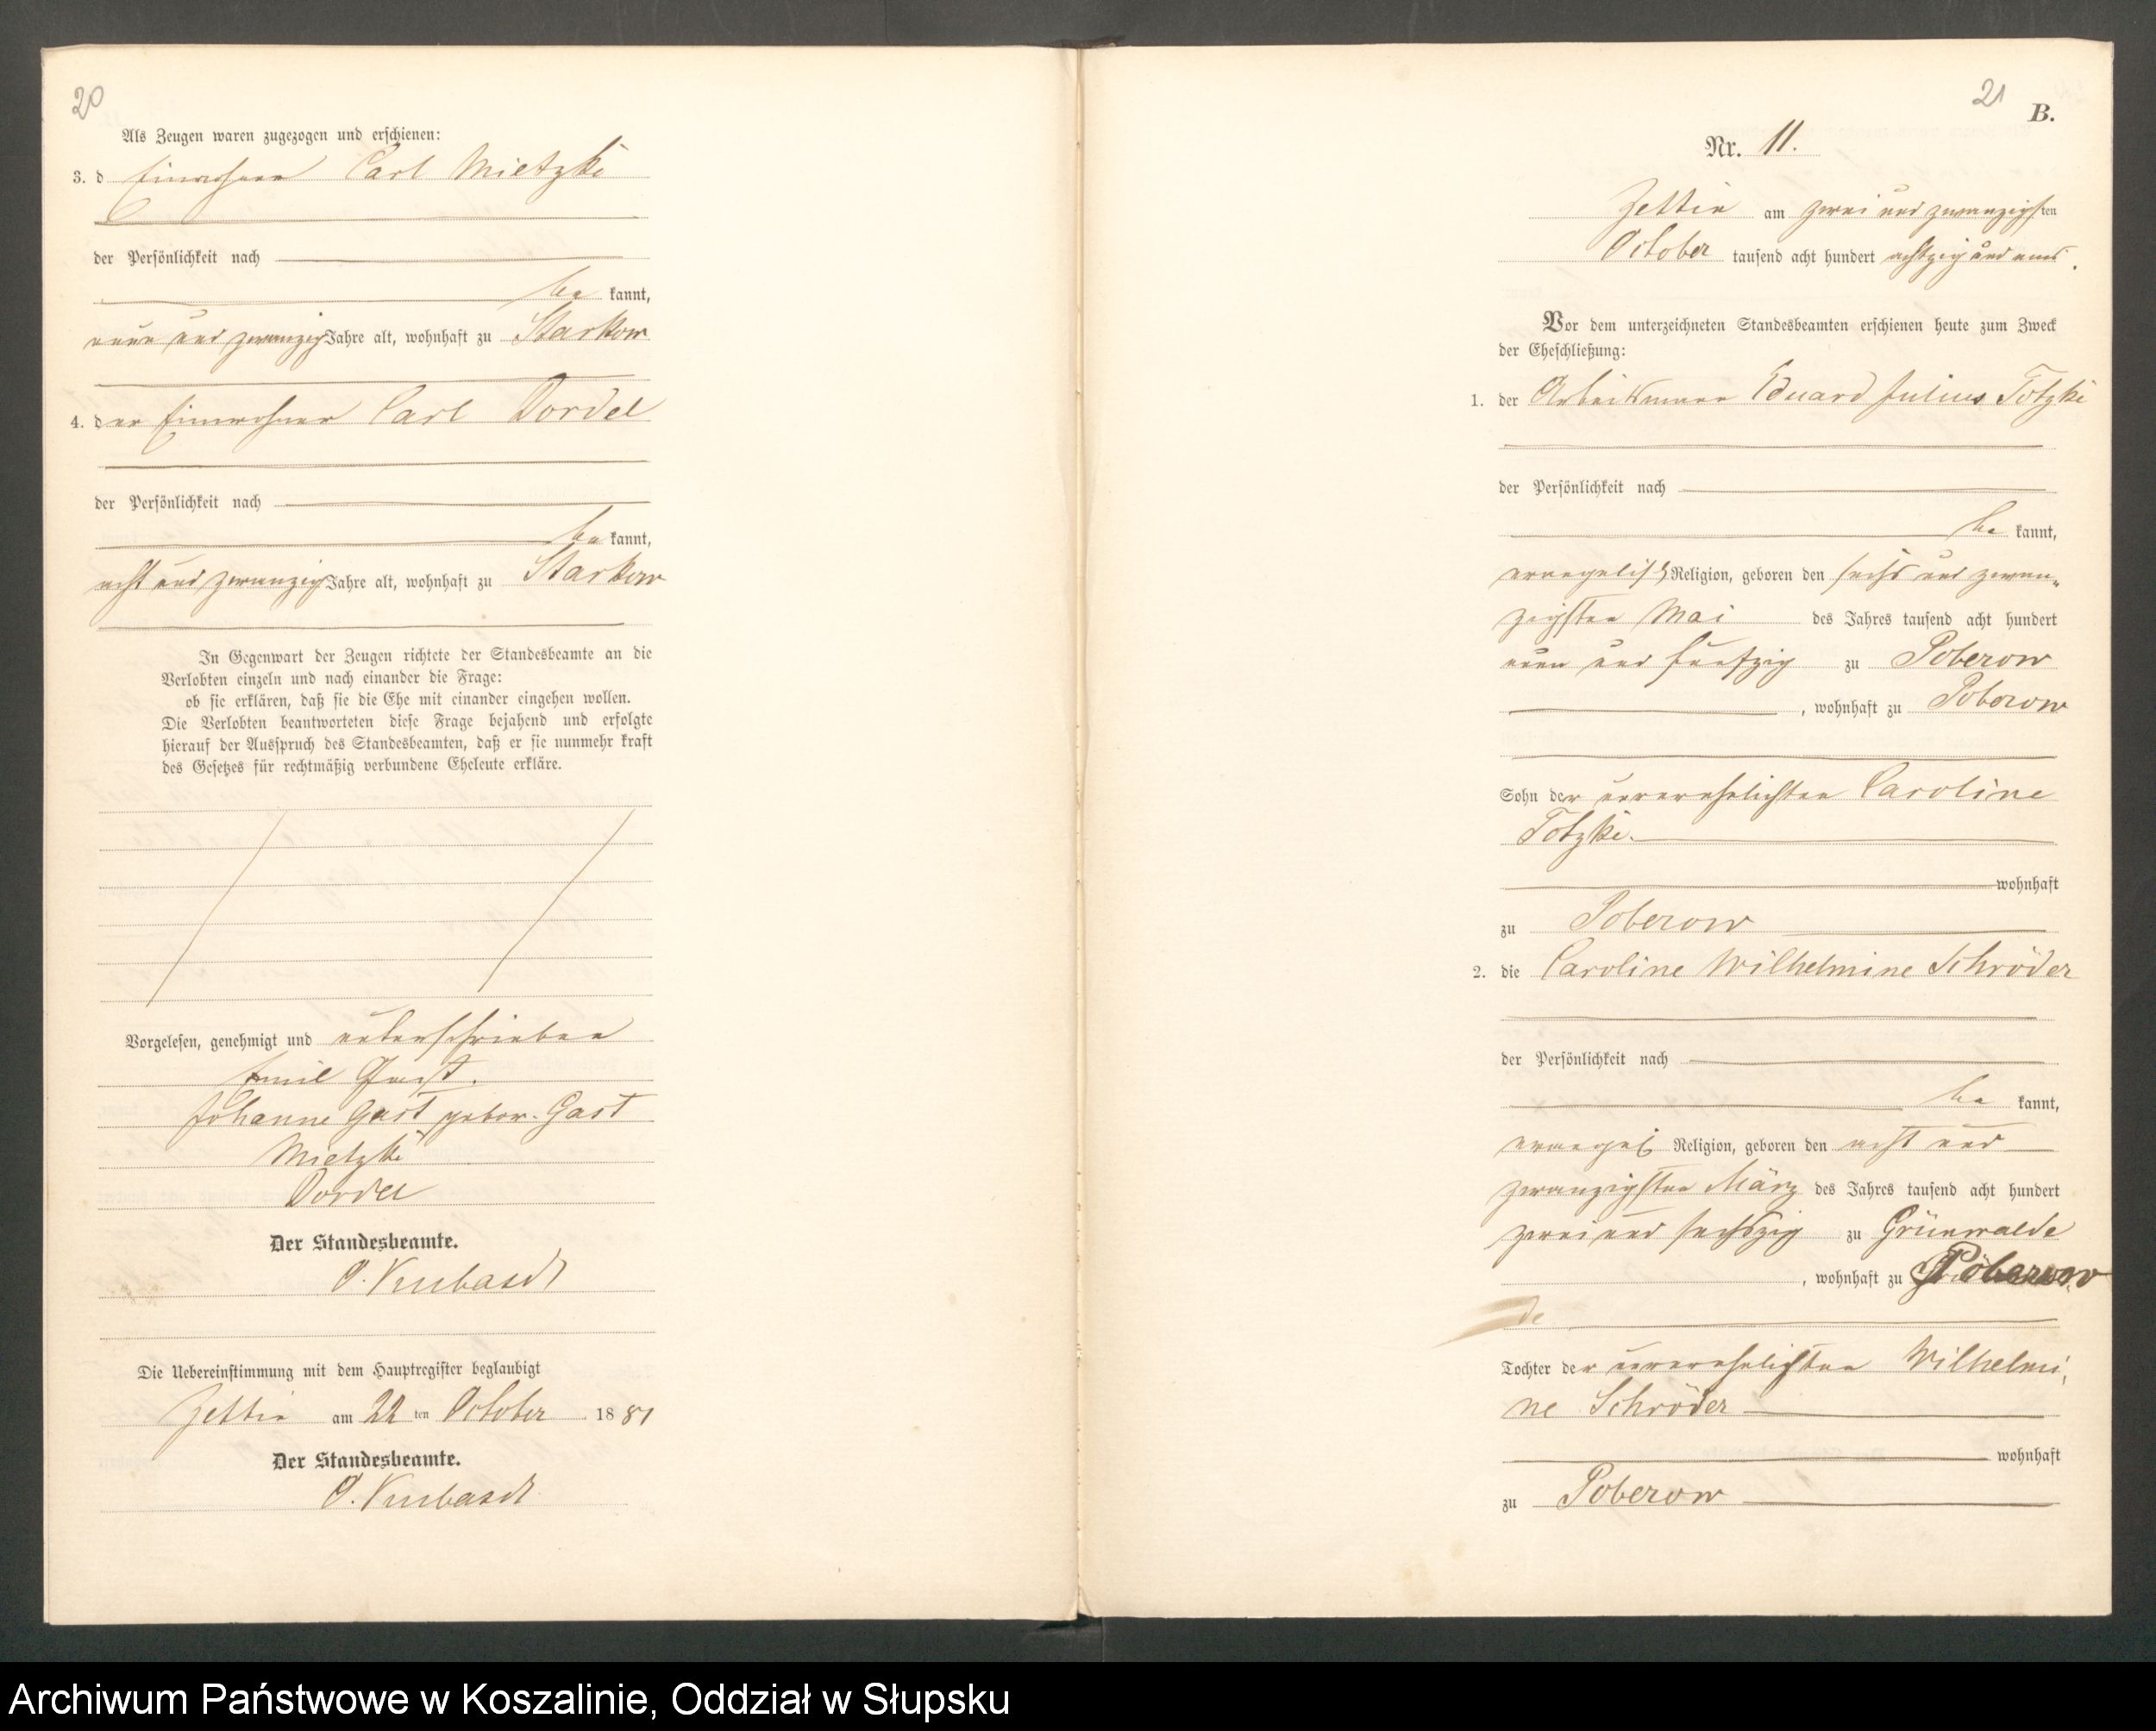 20
Als Zeugen waren zugezogen und erschienen:
3. d Einwohner Carl Mietzki
der Persönlichkeit nach
be kannt,
neun und zwanzig Jahre alt, wohnhaft zu Starkow
4. der Einwohner Carl Dordel
der Persönlichkeit nach
be kannt,
acht und zwanzig Jahre alt, wohnhaft zu Starkow
In Gegenwart der Zeugen richtete der Standesbeamte an die
Verlobten einzeln und nach einander die Frage:
ob sie erklären, daß sie die Ehe mit einander eingehen wollen.
Die Verlobten beantworteten diese Frage bejahend und erfolgte
hierauf der Ausspruch des Standesbeamten, daß er sie nunmehr kraft
des Gesetzes für rechtmäßig verbundene Eheleute erkläre.
Vorgelesen, genehmigt und unterschrieben
Emil Gast.
Johanne Gast gebor. Gast
Mietzki
Dordel
Der Standesbeamte.
O.
Die Uebereinstimmung mit dem Hauptregister beglaubigt
Zettin am 22 ten October 1881
Der Standesbeamte.
O.
21
B.
Nr. 11.
Zettin am zwei und zwanzigsten
October tausend acht hundert achtzig und eins.
Vor dem unterzeichneten Standesbeamten erschienen heute zum Zweck
der Eheschließung:
1. der Arbeitsmann Eduard Julius Totzki
der Persönlichkeit nach
be kannt,
evangelisch Religion, geboren den sechs und zwan-
zigsten Mai des Jahres tausend acht hundert
neun und fünfzig zu Poberow
, wohnhaft zu Poberow
Sohn der unverehelichten Caroline
Totzki.
wohnhaft
zu Poberow
2. die Caroline Wilhelmine Schröder
der Persönlichkeit nach
be kannt,
evangel Religion, geboren den acht und
zwanzigsten März des Jahres tausend acht hundert
zwei und sechszig zu Grünwalde
, wohnhaft zu Poberow
de
Tochter der unverehelichten Wilhelmi-
ne Schröder
wohnhaft
zu Poberow
Archiwum Państwowe w Koszalinie, Oddział w Słupsku